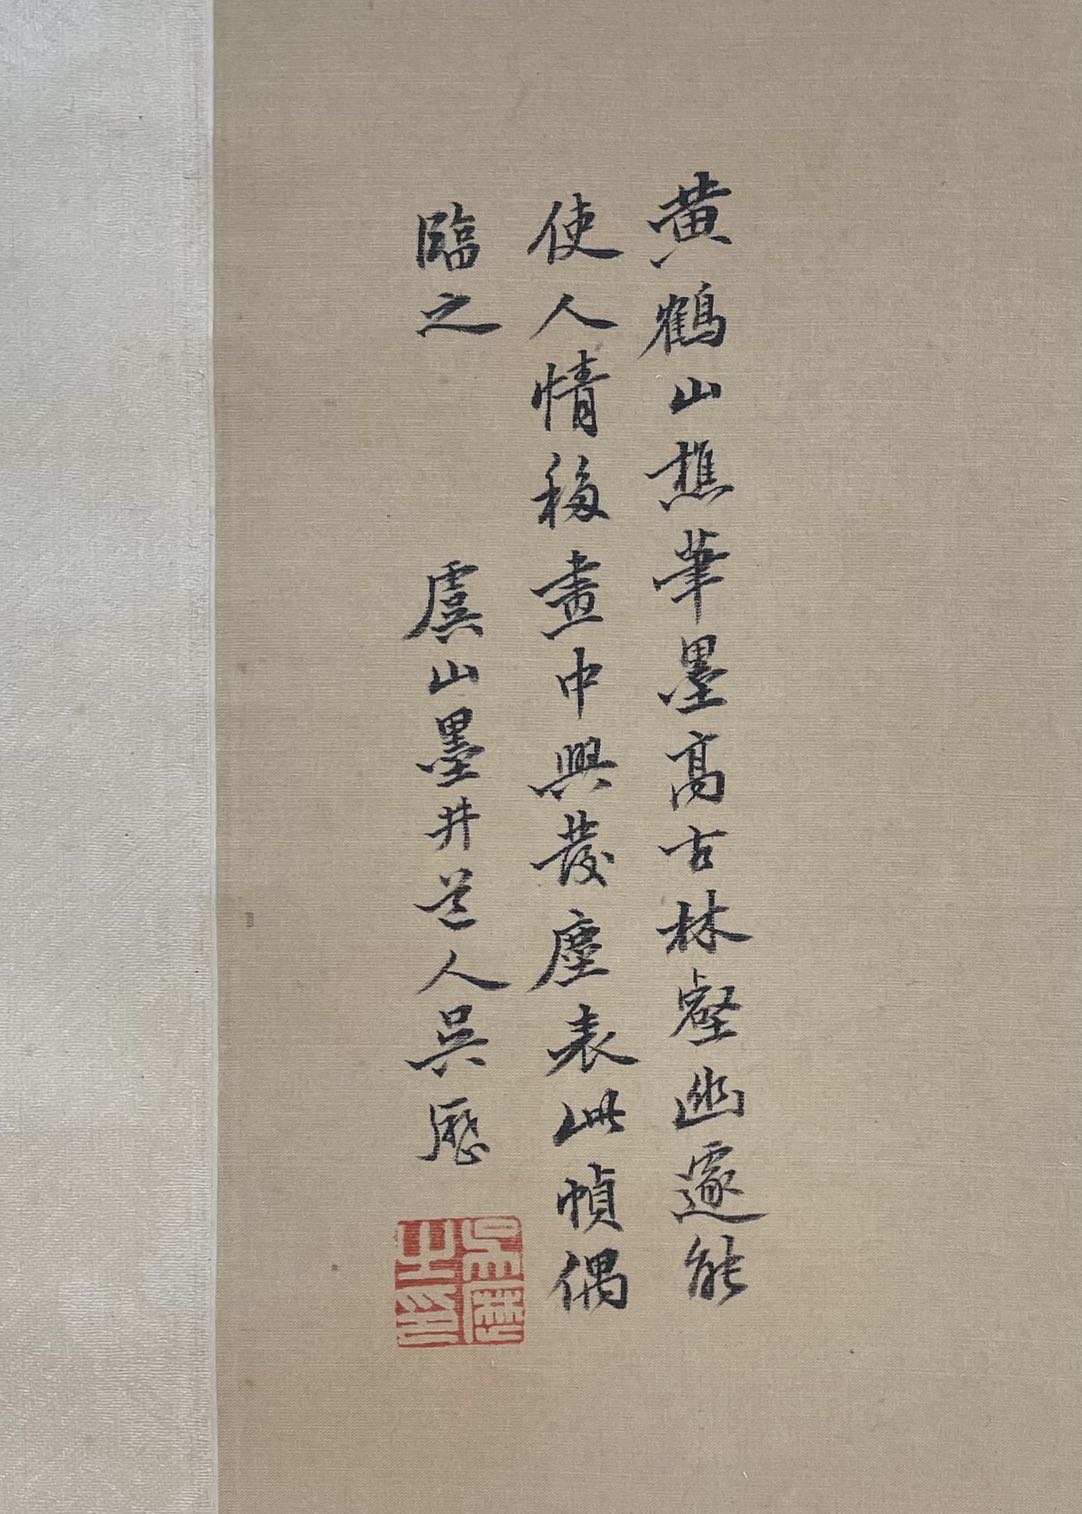 黄鶴山樵筆墨高古林壑幽邃能
使人情移畫中興發塵表此幀偶
臨之 虞山墨井道人吳歷
吳歷之印